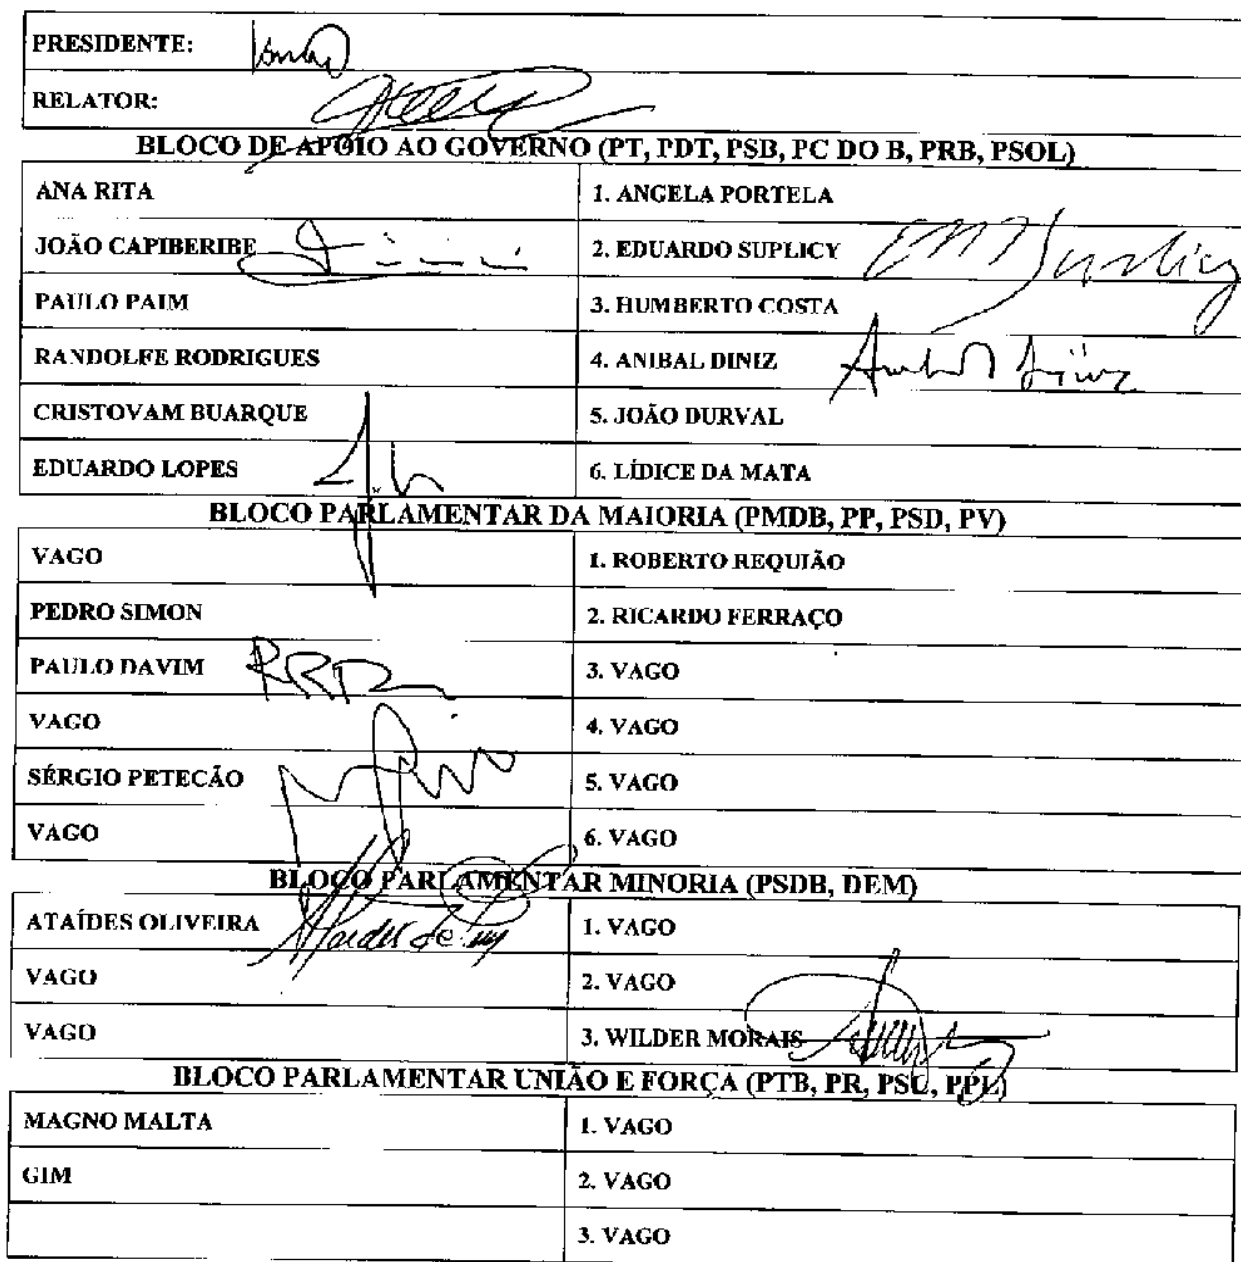 PRESIDENTE:
RELATOR:
BLOCO DE APOIO AO GOVERNO (PT, PDT, PSB, PC DO B, PRB, PSOL)
ANA RITA 1. ANGELA PORTELA
JOÃO CAPIBERIBE 2. EDUARDO SUPLICY
PAULO PAIM 3. HUMBERTO COSTA
RANDOLFE RODRIGUES 4. ANIBAL DINIZ
CRISTOVAM BUARQUE 5. JOÃO DURVAL
EDUARDO LOPES 6. LÍDICE DA MATA
BLOCO PARLAMENTAR DA MAIORIA (PMDB, PP, PSD, PV)
VAGO 1. ROBERTO REQUIÃO
PEDRO SIMON 2. RICARDO FERRAÇO
PAULO DAVIM 3. VAGO
VAGO 4. VAGO
SÉRGIO PETECÃO 5. VAGO
VAGO 6. VAGO
BLOCO PARLAMENTAR MINORIA (PSDB, DEM)
ATAÍDES OLIVEIRA 1. VAGO
VAGO 2. VAGO
VAGO 3. WILDER MORAIS
BLOCO PARLAMENTAR UNIÃO E FORÇA (PTB, PR, PSC, PPL)
MAGNO MALTA 1. VAGO
GIM 2. VAGO
3. VAGO